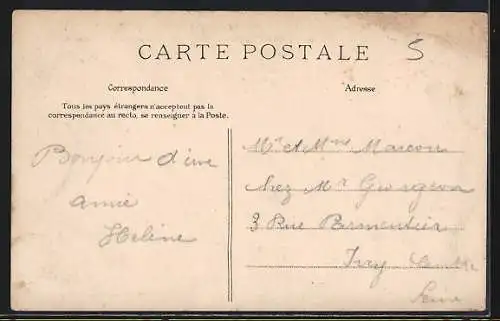 CARTE POSTALE
5
Correspondance
Adresse
Tous les pays étrangers n'acceptent pas la
correspondance au recto, se renseigner à la Poste.
Bonjour d'une
amie
Hélène
Mr et Mme Marcon
chez Mr
3 Rue Parmentier
Ivry
Seine